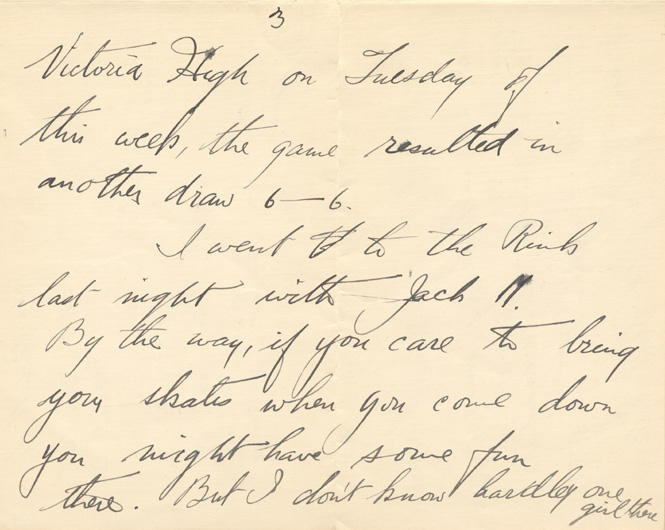 3
Victoria High on Tuesday of
this week, the game resulted in
another draw 6—6.
I went to the Rink
last night with Jack !!.
By the way, if you care to bring
your skates when you come down
you might have some fun
there. But I don't know hardley one
girl there